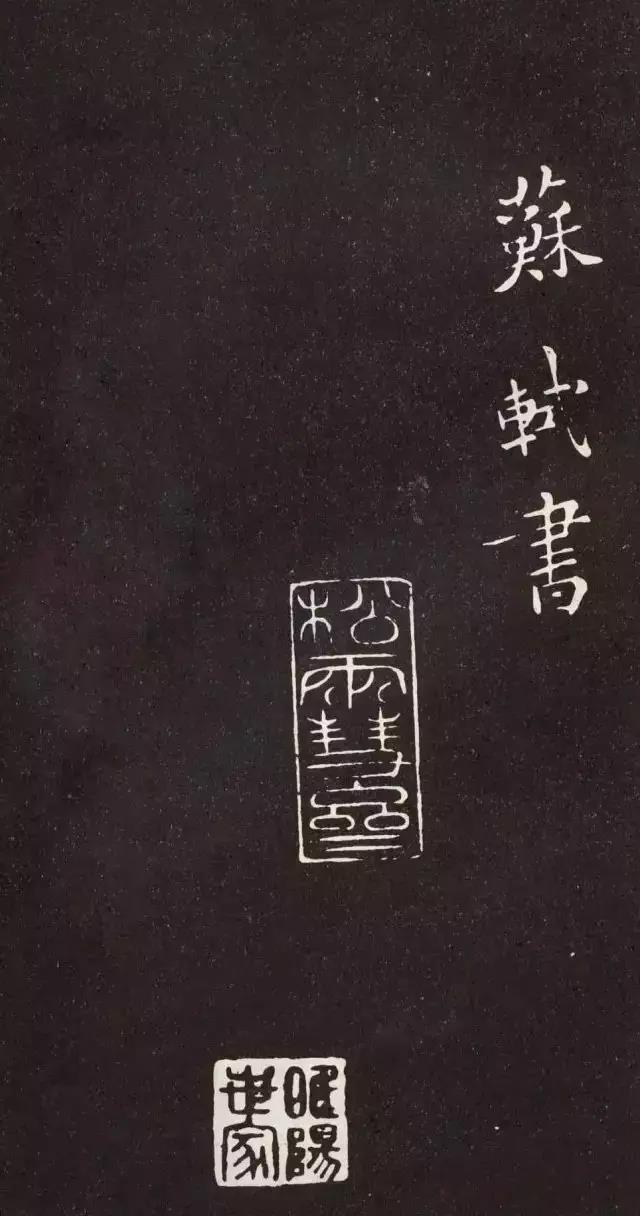 蘇軾書
松雪齋
睢陽世家